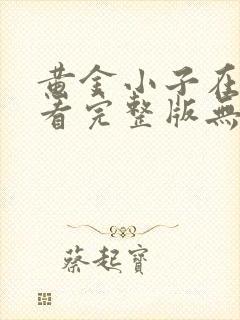 黄金小子在
看完整版無
蔡起寶